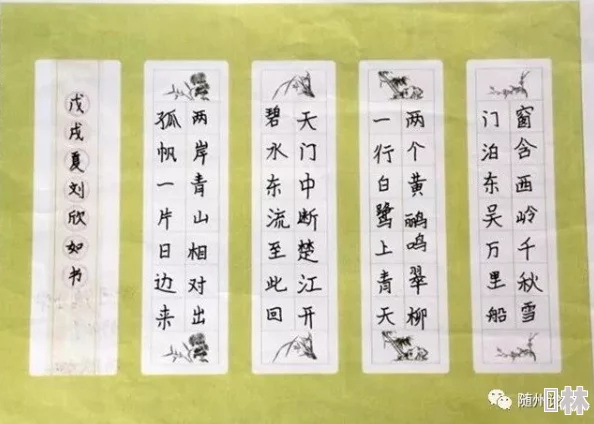 窗含西岭千秋雪
门泊东吴万里船
两个黄鹂鸣翠柳
一行白鹭上青天
天门中断楚江开
碧水东流至此回
两岸青山相对出
孤帆一片日边来
戊戌夏刘欣如书
随州
林